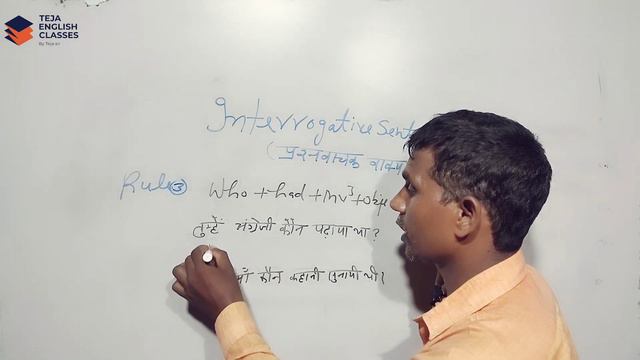 TEJA
ENGLISH
CLASSES
By Teja sir
Interrogative Sent
(प्रश्नवाचक वाक्य
Rule ③ Who + had + MV³ + Obje
तुम्हें अंग्रेजी कौन पढ़ाया था?
कौन कहानी सुनायी थी?